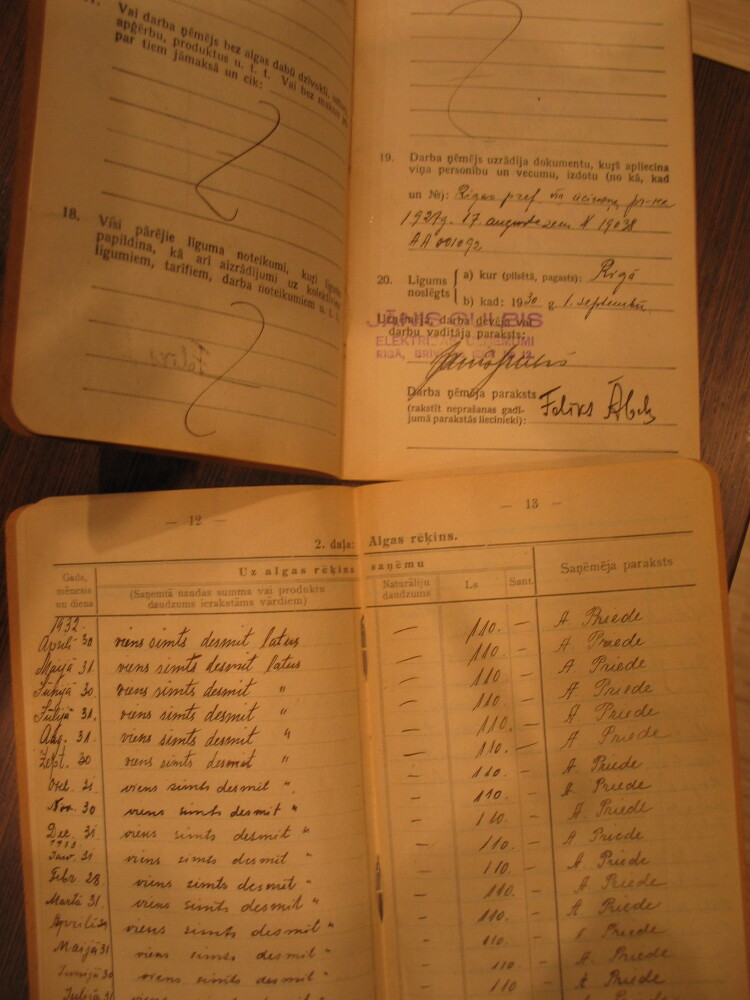 Vai darba ņēmējs bez algas dabū dzīvokli,
apģērbu, produktus u. t. t. Vai bez
par tiem jāmaksā un cik:
18. Visi pārējie līguma noteikumi, kuŗi
papildina, kā arī aizrādījumi uz
līgumiem, tarifiem, darba noteikumiem u. t. t.
19. Darba ņēmējs uzrādīja dokumentu, kuŗš apliecina
viņa personību un vecumu, izdotu (no kā, kad
un №): Rīgas pref. VIII iecirkņa pr-ka
1927g. 17 augustā zem N 19038
AA 001092
20. Līgums noslēgts
a) kur (pilsētā, pagastā): Rīgā
b) kad: 1930 g. 1. septembrī.
darba devēja vai
darbu vadītāja paraksts:
JĀNIS GULBIS
Darba ņēmēja paraksts Felikss
(rakstīt neprašanas gadī-
jumā parakstās liecinieki):
— 12 —
— 13 —
2. daļa: Algas rēķins.
Uz algas rēķina saņēmu
Gads, mēnesis un diena
(Saņemtā naudas summa vai produktu daudzums ierakstāms vārdiem)
Naturāliju daudzums
Ls
Sant.
Saņēmēja paraksts
1932.
Aprīlī 30 viens simts desmit latus — 110. — A Priede
Maijā 31. viens simts desmit latus — 110. — A Priede
Jūnijā 30. viens simts desmit " — 110. — A Priede
Jūlijā 31. viens simts desmit " — 110. — A Priede
Aug. 31. viens simts desmit " — 110. — A Priede
Sept. 30 viens simts desmit " — 110. — A Priede
Oct. 31. viens simts desmit " — 110. — A. Priede
Nov. 30 viens simts desmit " — 110. — A. Priede
Dec. 31. viens simts desmit " — 110. — A. Priede
1933.
Janv. 31 viens simts desmit " — 110. — A Priede
Febr. 28 viens simts desmit " — 110. — A. Priede
Martā 31. viens simts desmit " — 110. — A. Priede
Aprīlī viens simts desmit " — 110. — A. Priede
Maijā 31 viens simts desmit " — 110. — Priede
Jūnijā 30 viens simts desmit " — 110 — A. Priede
Jūlijā viens simts desmit " — 110 — Priede